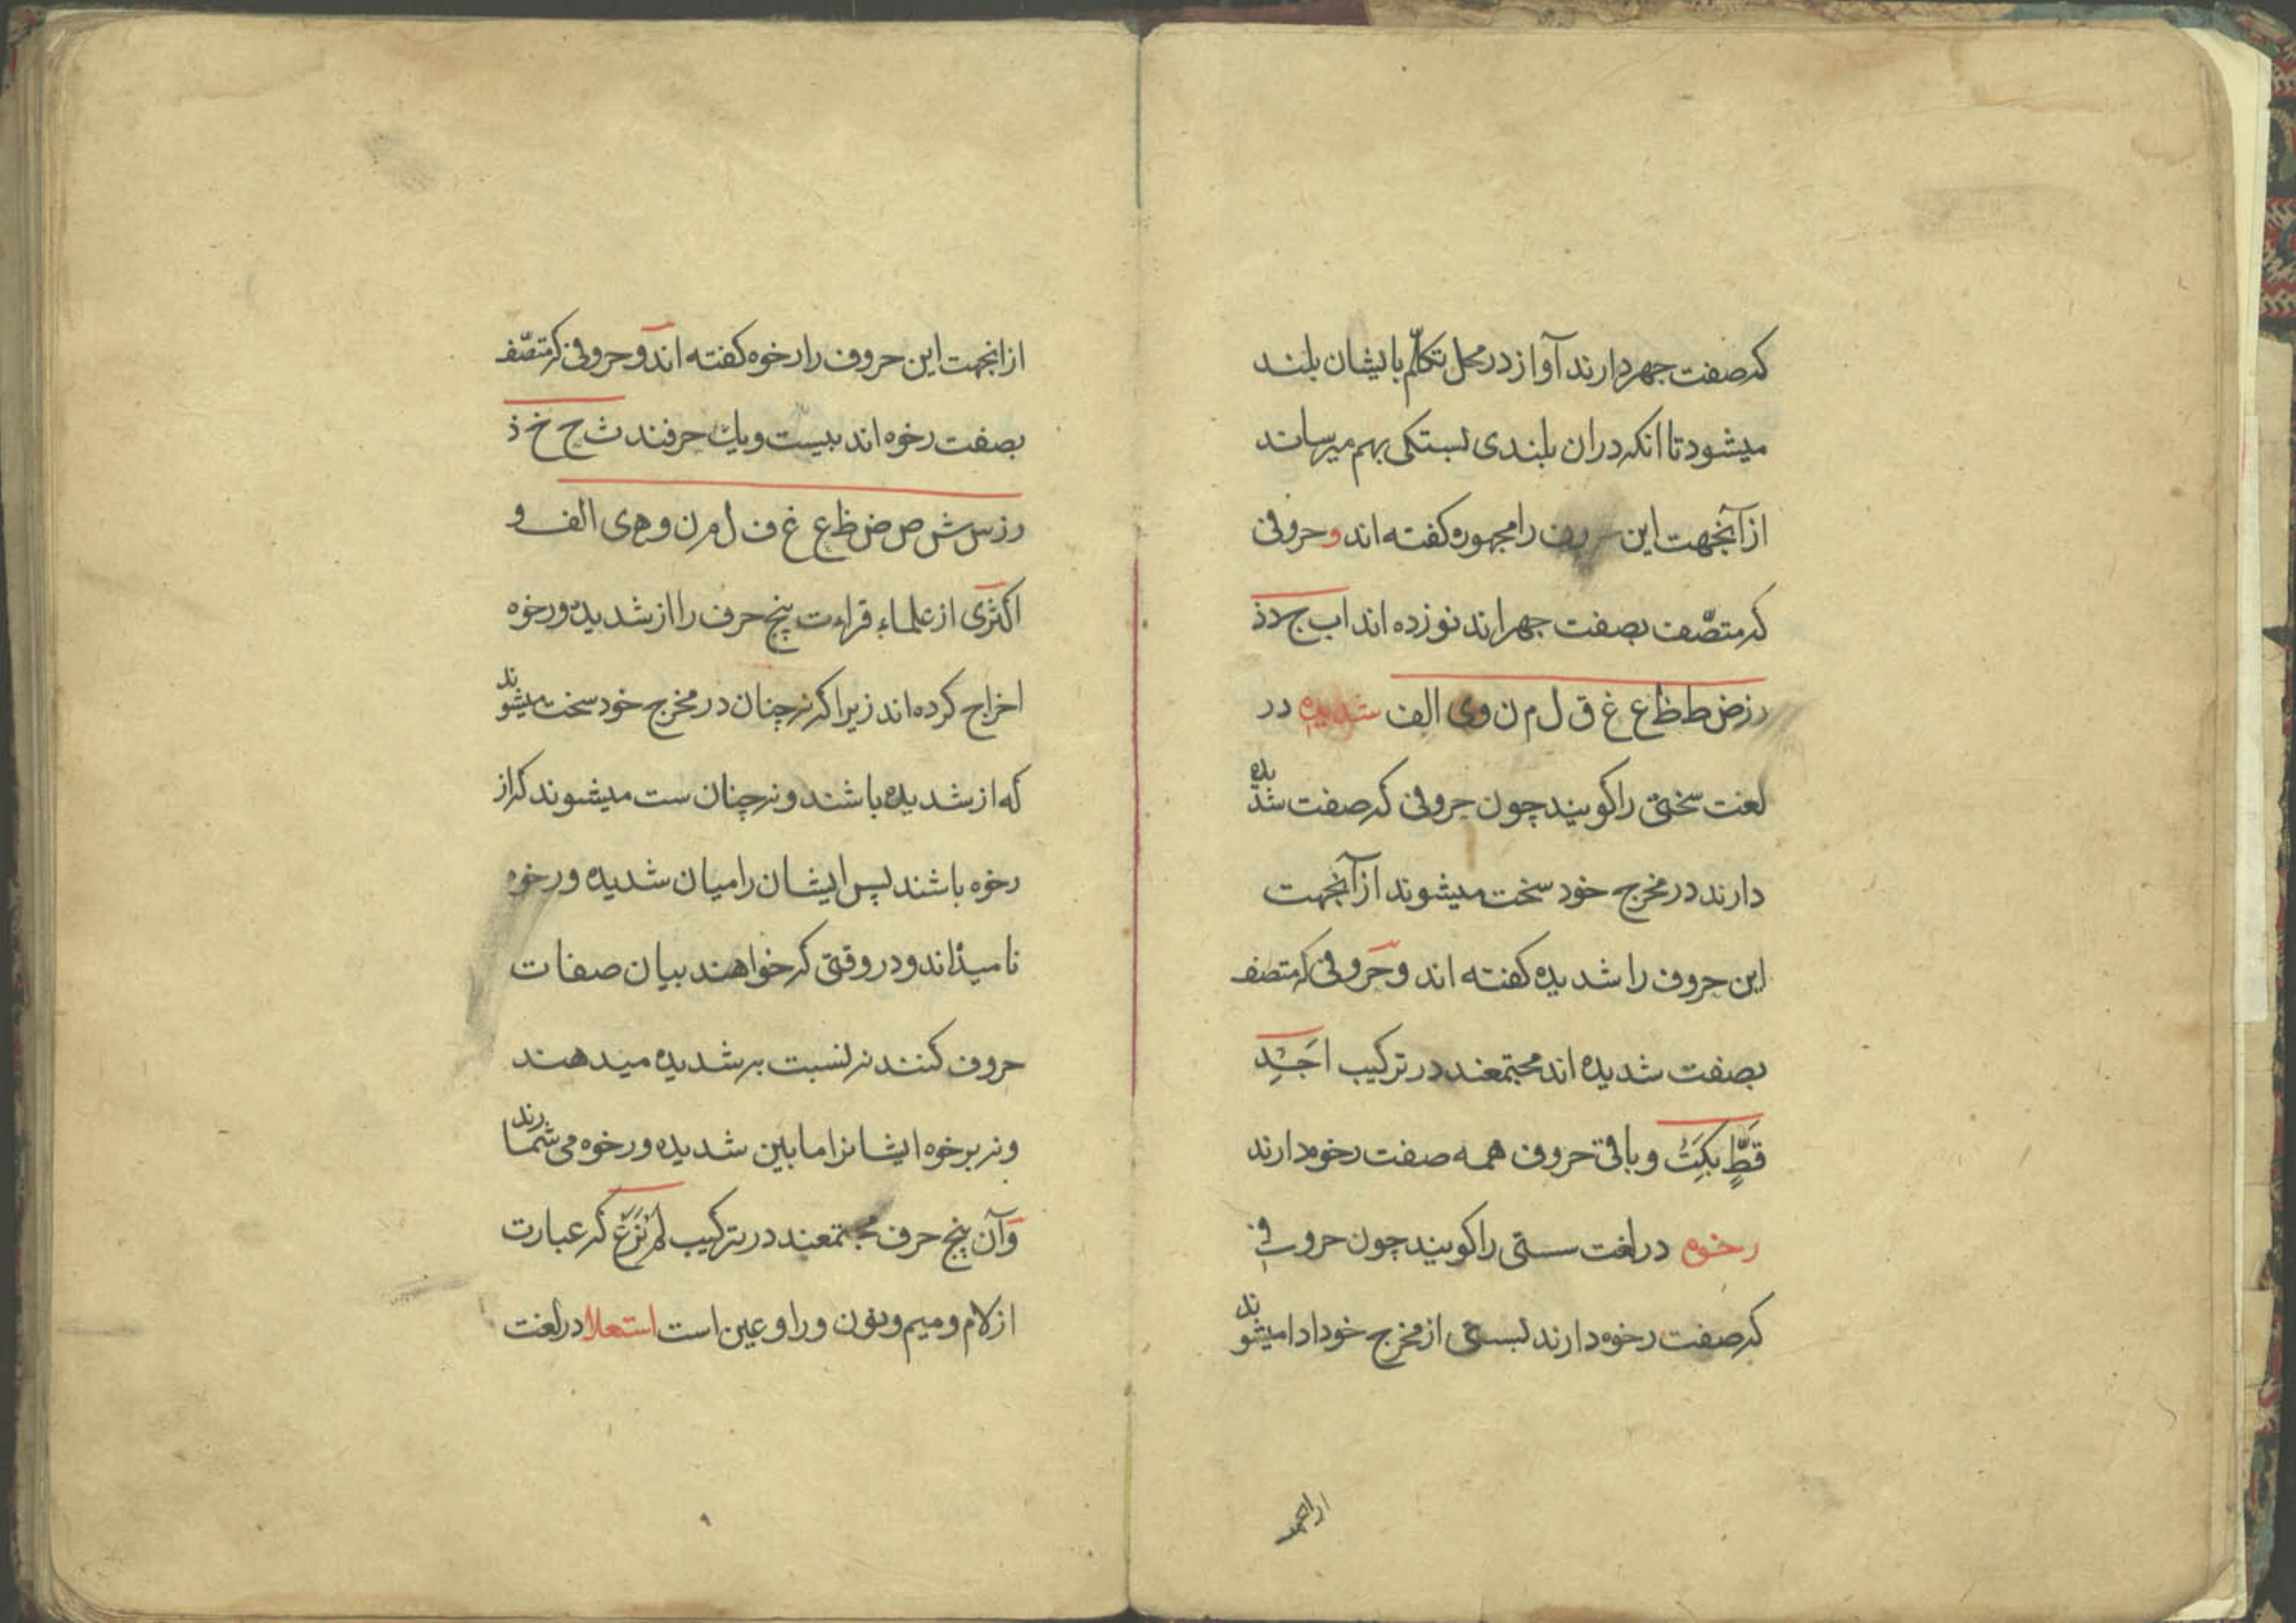 که صفت جهر دارند آواز در محل تکلّم بایشان بلند
میشود تا انکه دران بلندی بستکی بهم میرساند
از آنجهت این حروف را مجهوره کفته اند و حروفی
که متصّف بصفت جهراند نوزده اند اب ج د ذ
ر ز ض ط ظ ع غ ق ل م ن و ی الف شدیده در
لغت سختی را کویند چون حروفی که صفت شدیده
دارند در مخرج خود سخت میشوند از آنجهت
این حروف را شدیده کفته اند و حروفی که متصف
بصفت شدیده اند مجتمعند در ترکیب اَجَدِ
قَطٍّ بَکَتْ و باقی حروف همه صفت رخوه دارند
رخوه در لغت سستی را کویند چون حروفی
که صفت رخوه دارند بسستی از مخرج خود ادا میشوند
از انجهت
از انجهت این حروف را رخوه کفته اند و حروفی که متصّف
بصفت رخوه اند بیست و یك حرفند ث ح خ ذ
ر ز س ش ص ض ظ ع غ ف ل م ن و ه ی الف و
اکثری از علماء قراءت پنج حرف را از شدیده و رخوه
اخراج کرده اند زیرا که نه چنان در مخرج خود سخت میشوند
که از شدیده باشند و نه چنان سست میشوند که از
رخوه باشند پس ایشان را میان شدیده و رخوه
نامیذاند و در وقتی که خواهند بیان صفات
حروف کنند نه نسبت به شدیده میدهند
و نه برخوه ایشانرا ما بین شدیده و رخوه می شمارند
و آن پنج حرف مجتمعند در ترکیب لم نرع که عبارت
از لام و میم و نون و را و عین است استعلا در لغت